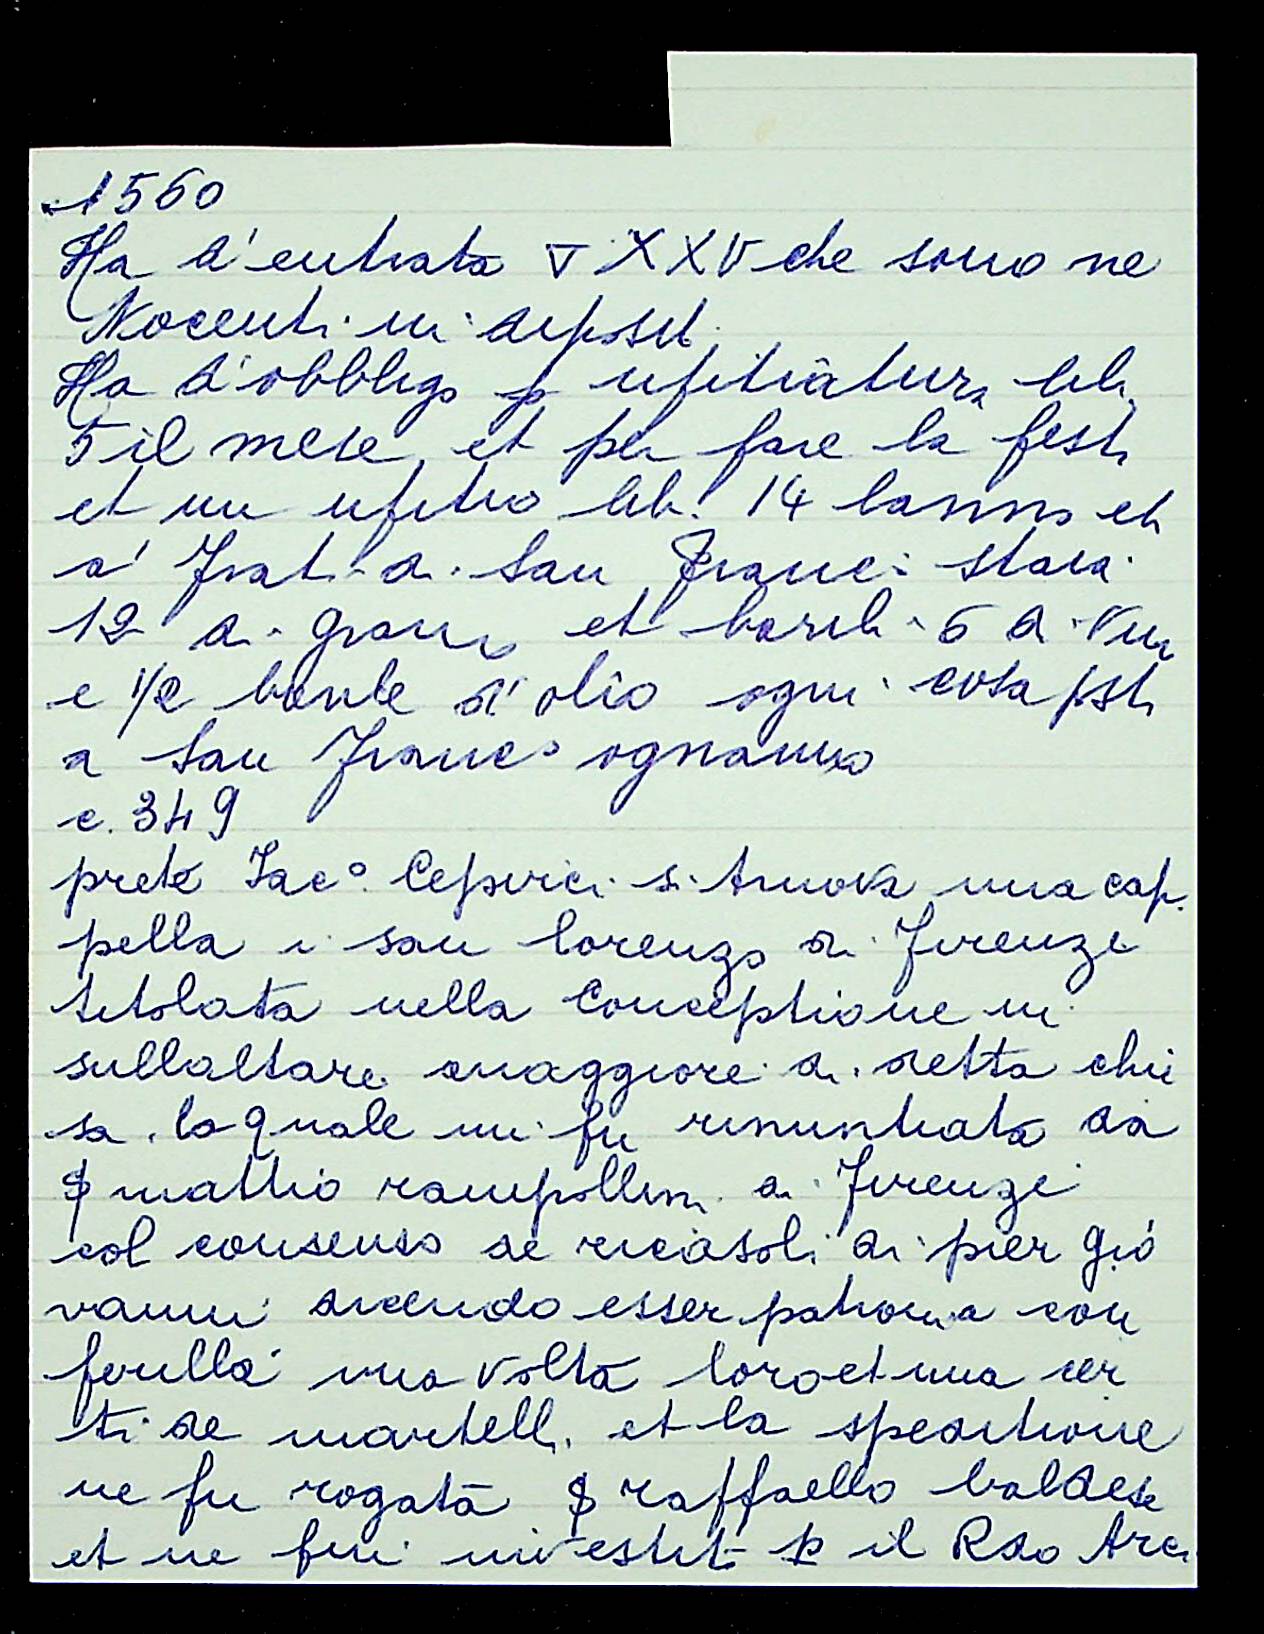 1560
Ha d'entrata ▽ XXV che sono ne
Nocenti in deposit.
Ha d'obbligo p ufitiatura lib.
5 il mese et per fare la festa
et un ufitio lib. 14 lanno et
a' frati di San Franc.o staia
12 di grano et barili 6 di vin
e 1/2 barile d'olio ogni cosa posta
a San Franc.o ognanno
c. 349
prete Jac.o si truova una cap
pella i san Lorenzo di Firenze
titolata nella Conceptione in
sullaltare maggiore di detta chie
sa. la quale mi fu rinuntiata da
$ mattio rampollini di Firenze
col consenso de ricasoli di pier gio
vanni dicendo esser patroni a con
ferilla una volta loro et una cer
ti de martelli. et la speditione
ne fu rogata $ raffaello baldesi
et ne fui investit p il Rdo Arci